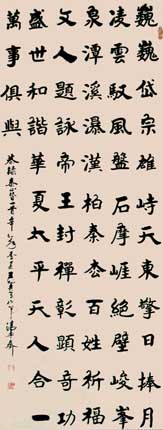 巍巍岱宗雄峙天東擎日捧月
凌雲馭風盤石摩崖絕壁峻峯
泉潭溪瀑漢柏秦枩百姓祈福
文人題詠帝王封禪彰顯奇功
盛世和諧華夏太平天人合一
萬事俱興